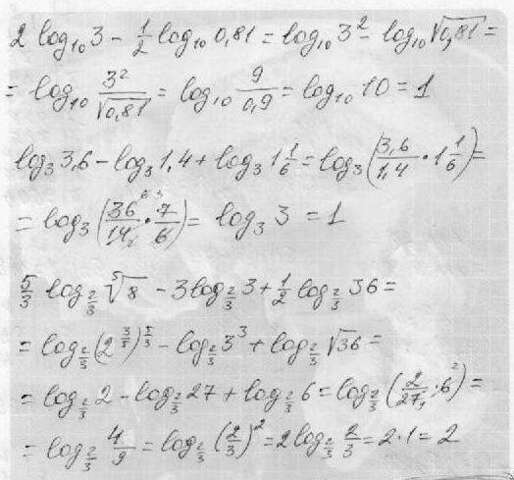 2 log₁₀ 3 - 1/2 log₁₀ 0,81 = log₁₀ 3² - log₁₀ √0,81 =
= log₁₀ 3²/√0,81 = log₁₀ 9/0,9 = log₁₀ 10 = 1
log₃ 3,6 - log₃ 1,4 + log₃ 1 1/6 = log₃ (3,6/1,4 · 1 1/6) =
= log₃ (36/14 · 7/6) = log₃ 3 = 1
5/3 log_{2/3} ⁵√8 - 3 log_{2/3} 3 + 1/2 log_{2/3} 36 =
= log_{2/3} (2^{3/5})^{5/3} - log_{2/3} 3³ + log_{2/3} √36 =
= log_{2/3} 2 - log_{2/3} 27 + log_{2/3} 6 = log_{2/3} (2/27 · 6²) =
= log_{2/3} 4/9 = log_{2/3} (2/3)² = 2 log_{2/3} 2/3 = 2 · 1 = 2